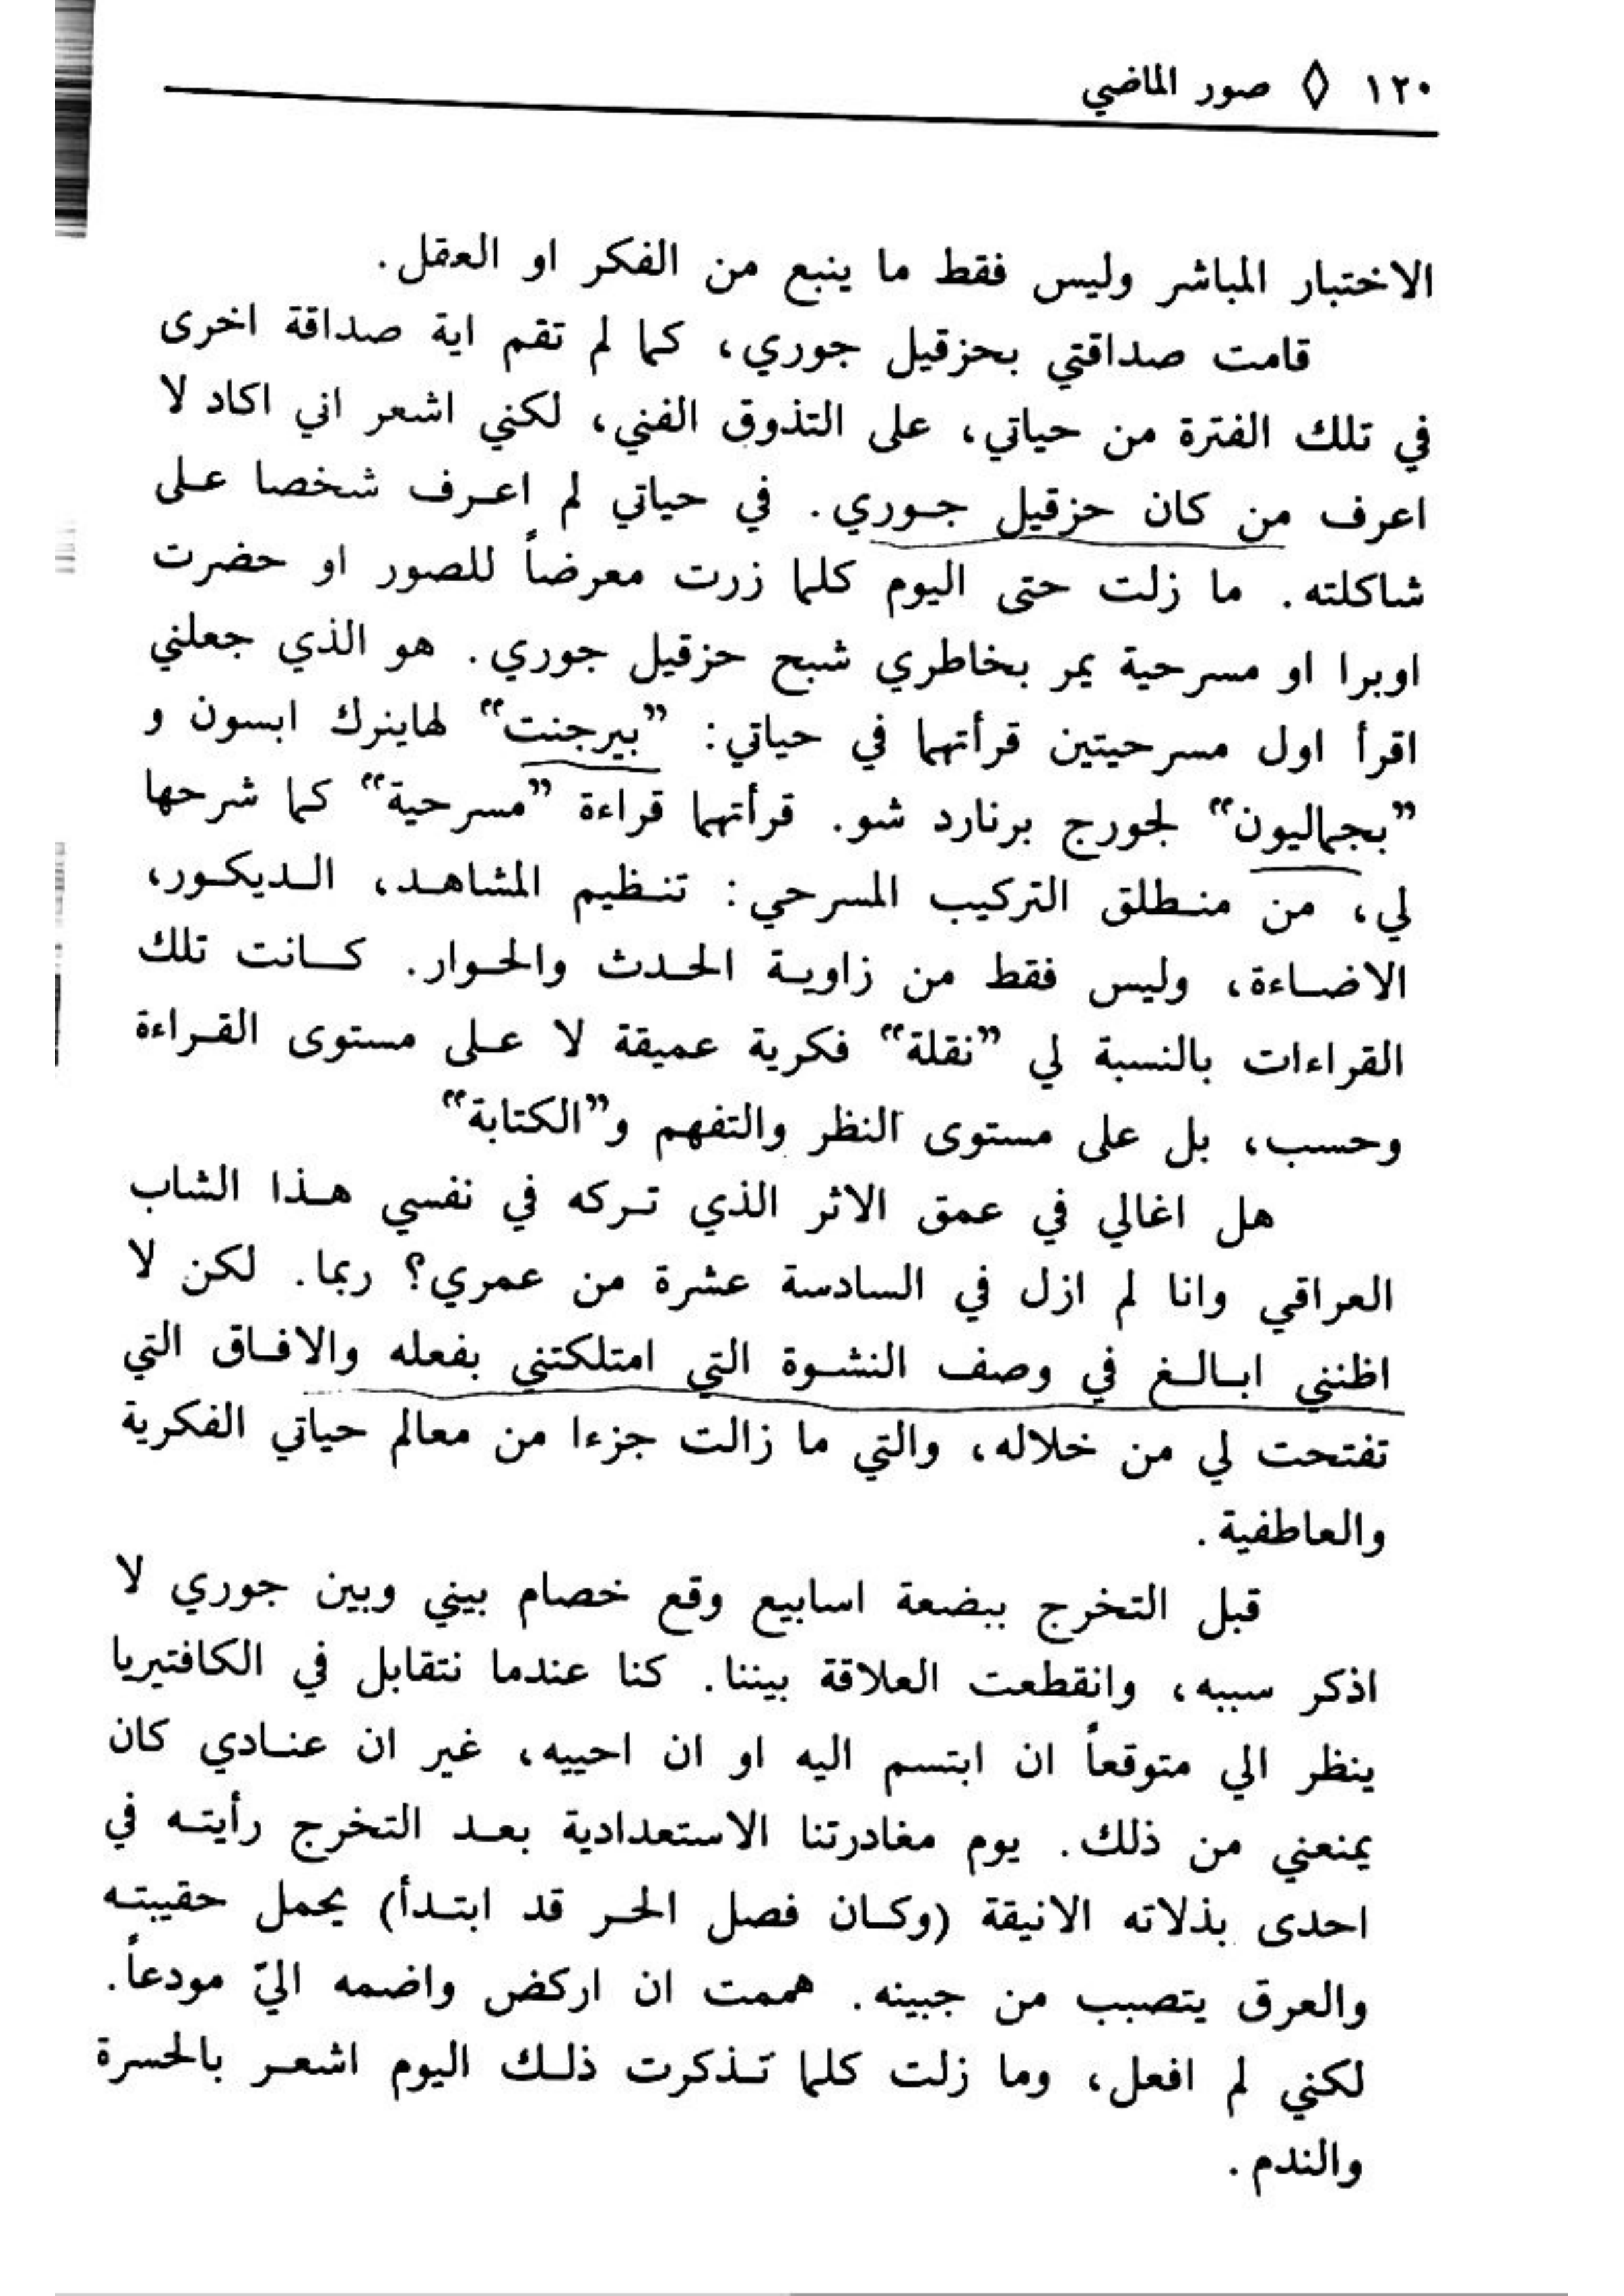 ١٢٠ ◊ صور الماضي
الاختبار المباشر وليس فقط ما ينبع من الفكر او العقل.
قامت صداقتي بحزقيل جوري، كما لم تقم اية صداقة اخرى
في تلك الفترة من حياتي، على التذوق الفني، لكني اشعر اني اكاد لا
اعرف من كان حزقيل جوري. في حياتي لم اعرف شخصا على
شاكلته. ما زلت حتى اليوم كلما زرت معرضاً للصور او حضرت
اوبرا او مسرحية يمر بخاطري شبح حزقيل جوري. هو الذي جعلني
اقرأ اول مسرحيتين قرأتهما في حياتي: ”بيرجنت“ لهاينرك ابسون و
”بجماليون“ لجورج برنارد شو. قرأتهما قراءة ”مسرحية“ كما شرحها
لي، من منطلق التركيب المسرحي: تنظيم المشاهد، الديكور،
الاضاءة، وليس فقط من زاوية الحدث والحوار. كانت تلك
القراءات بالنسبة لي ”نقلة“ فكرية عميقة لا على مستوى القراءة
وحسب، بل على مستوى النظر والتفهم و”الكتابة“
هل اغالي في عمق الاثر الذي تركه في نفسي هذا الشاب
العراقي وانا لم ازل في السادسة عشرة من عمري؟ ربما. لكن لا
اظنني ابالغ في وصف النشوة التي امتلكتني بفعله والافاق التي
تفتحت لي من خلاله، والتي ما زالت جزءا من معالم حياتي الفكرية
والعاطفية.
قبل التخرج ببضعة اسابيع وقع خصام بيني وبين جوري لا
اذكر سببه، وانقطعت العلاقة بيننا. كنا عندما نتقابل في الكافتيريا
ينظر الي متوقعاً ان ابتسم اليه او ان احييه، غير ان عنادي كان
يمنعني من ذلك. يوم مغادرتنا الاستعدادية بعد التخرج رأيته في
احدى بذلاته الانيقة (وكان فصل الحر قد ابتدأ) يحمل حقيبته
والعرق يتصبب من جبينه. هممت ان اركض واضمه اليّ مودعاً.
لكني لم افعل، وما زلت كلما تذكرت ذلك اليوم اشعر بالحسرة
والندم.